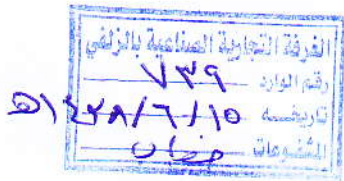 الغرفة التجارية الصناعية بالزلفي
رقم الوارد ٧٣٩
تاريخه ١٤٣٨/٦/١٥هـ
المشفوعات خطاب